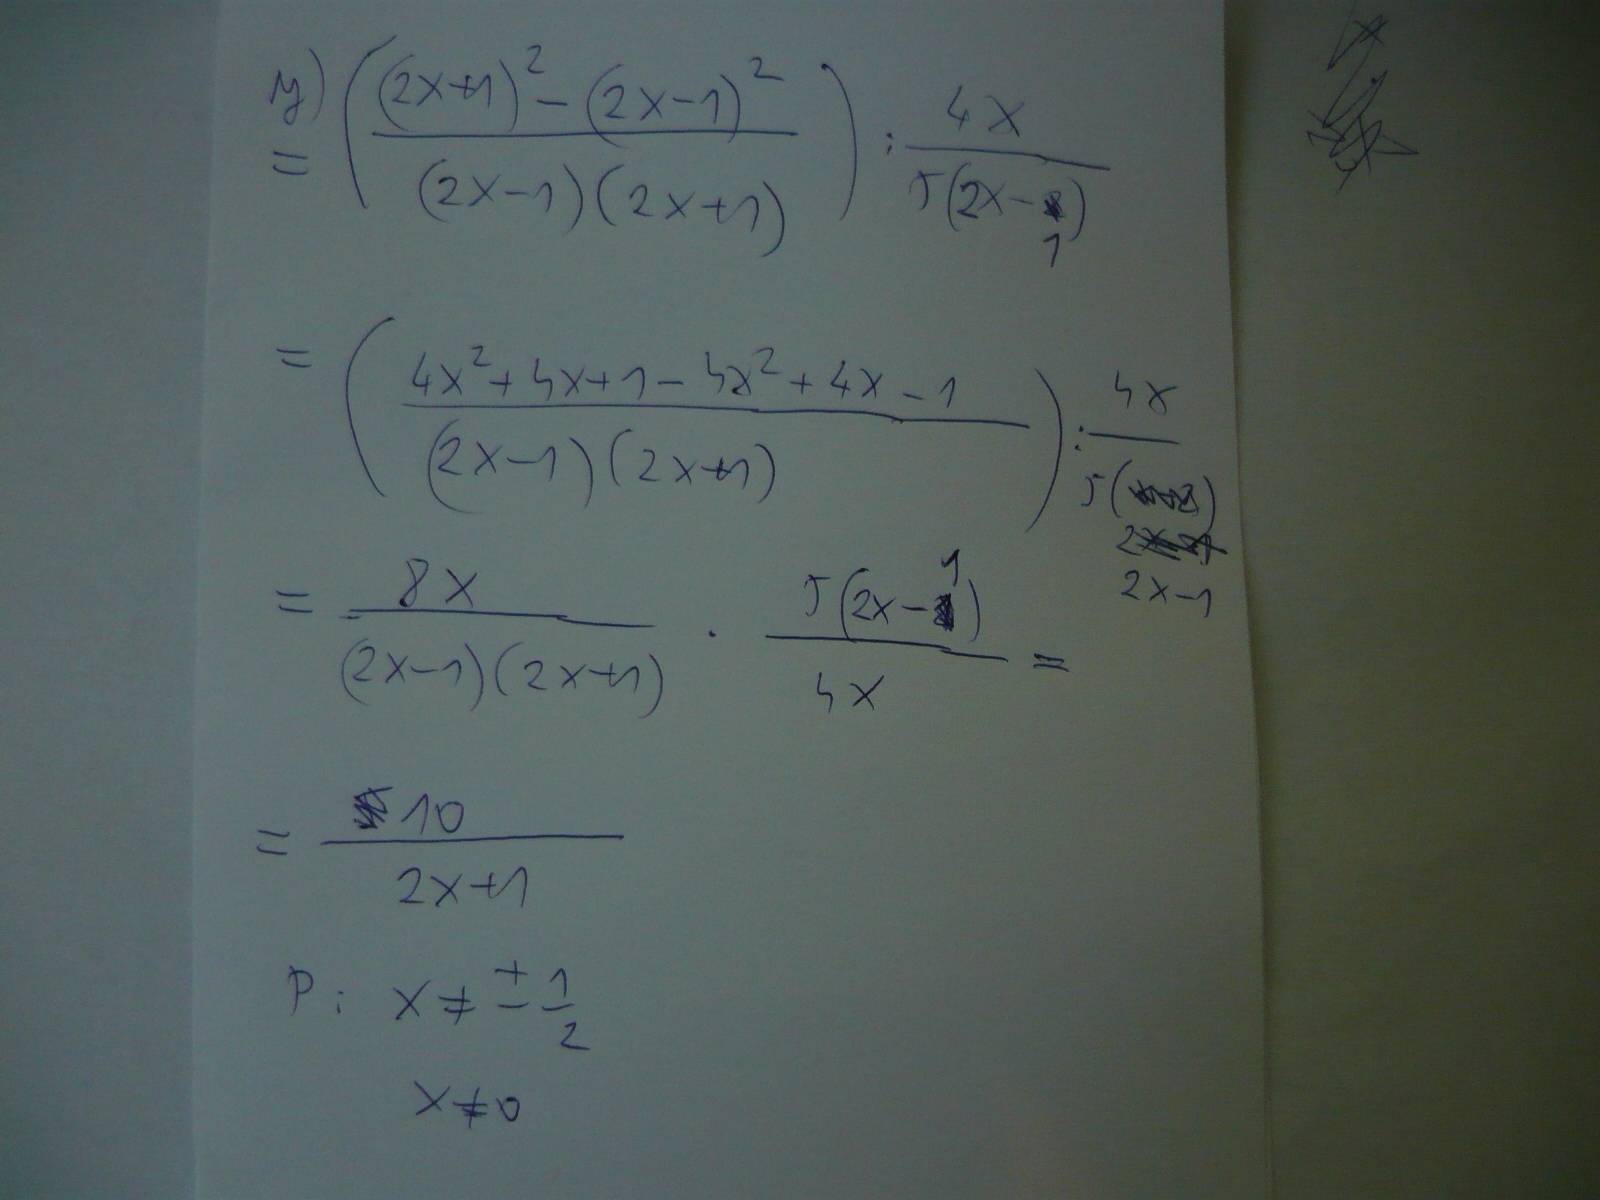 y) ( ((2x+1)² - (2x-1)²) / ((2x-1)(2x+1)) ) : 4x / (5(2x-1))
= ( (4x² + 4x + 1 - 4x² + 4x - 1) / ((2x-1)(2x+1)) ) : 4x / (5(2x-1))
= 8x / ((2x-1)(2x+1)) · 5(2x-1) / 4x =
= 10 / (2x+1)
P: x ≠ ± 1/2
x ≠ 0